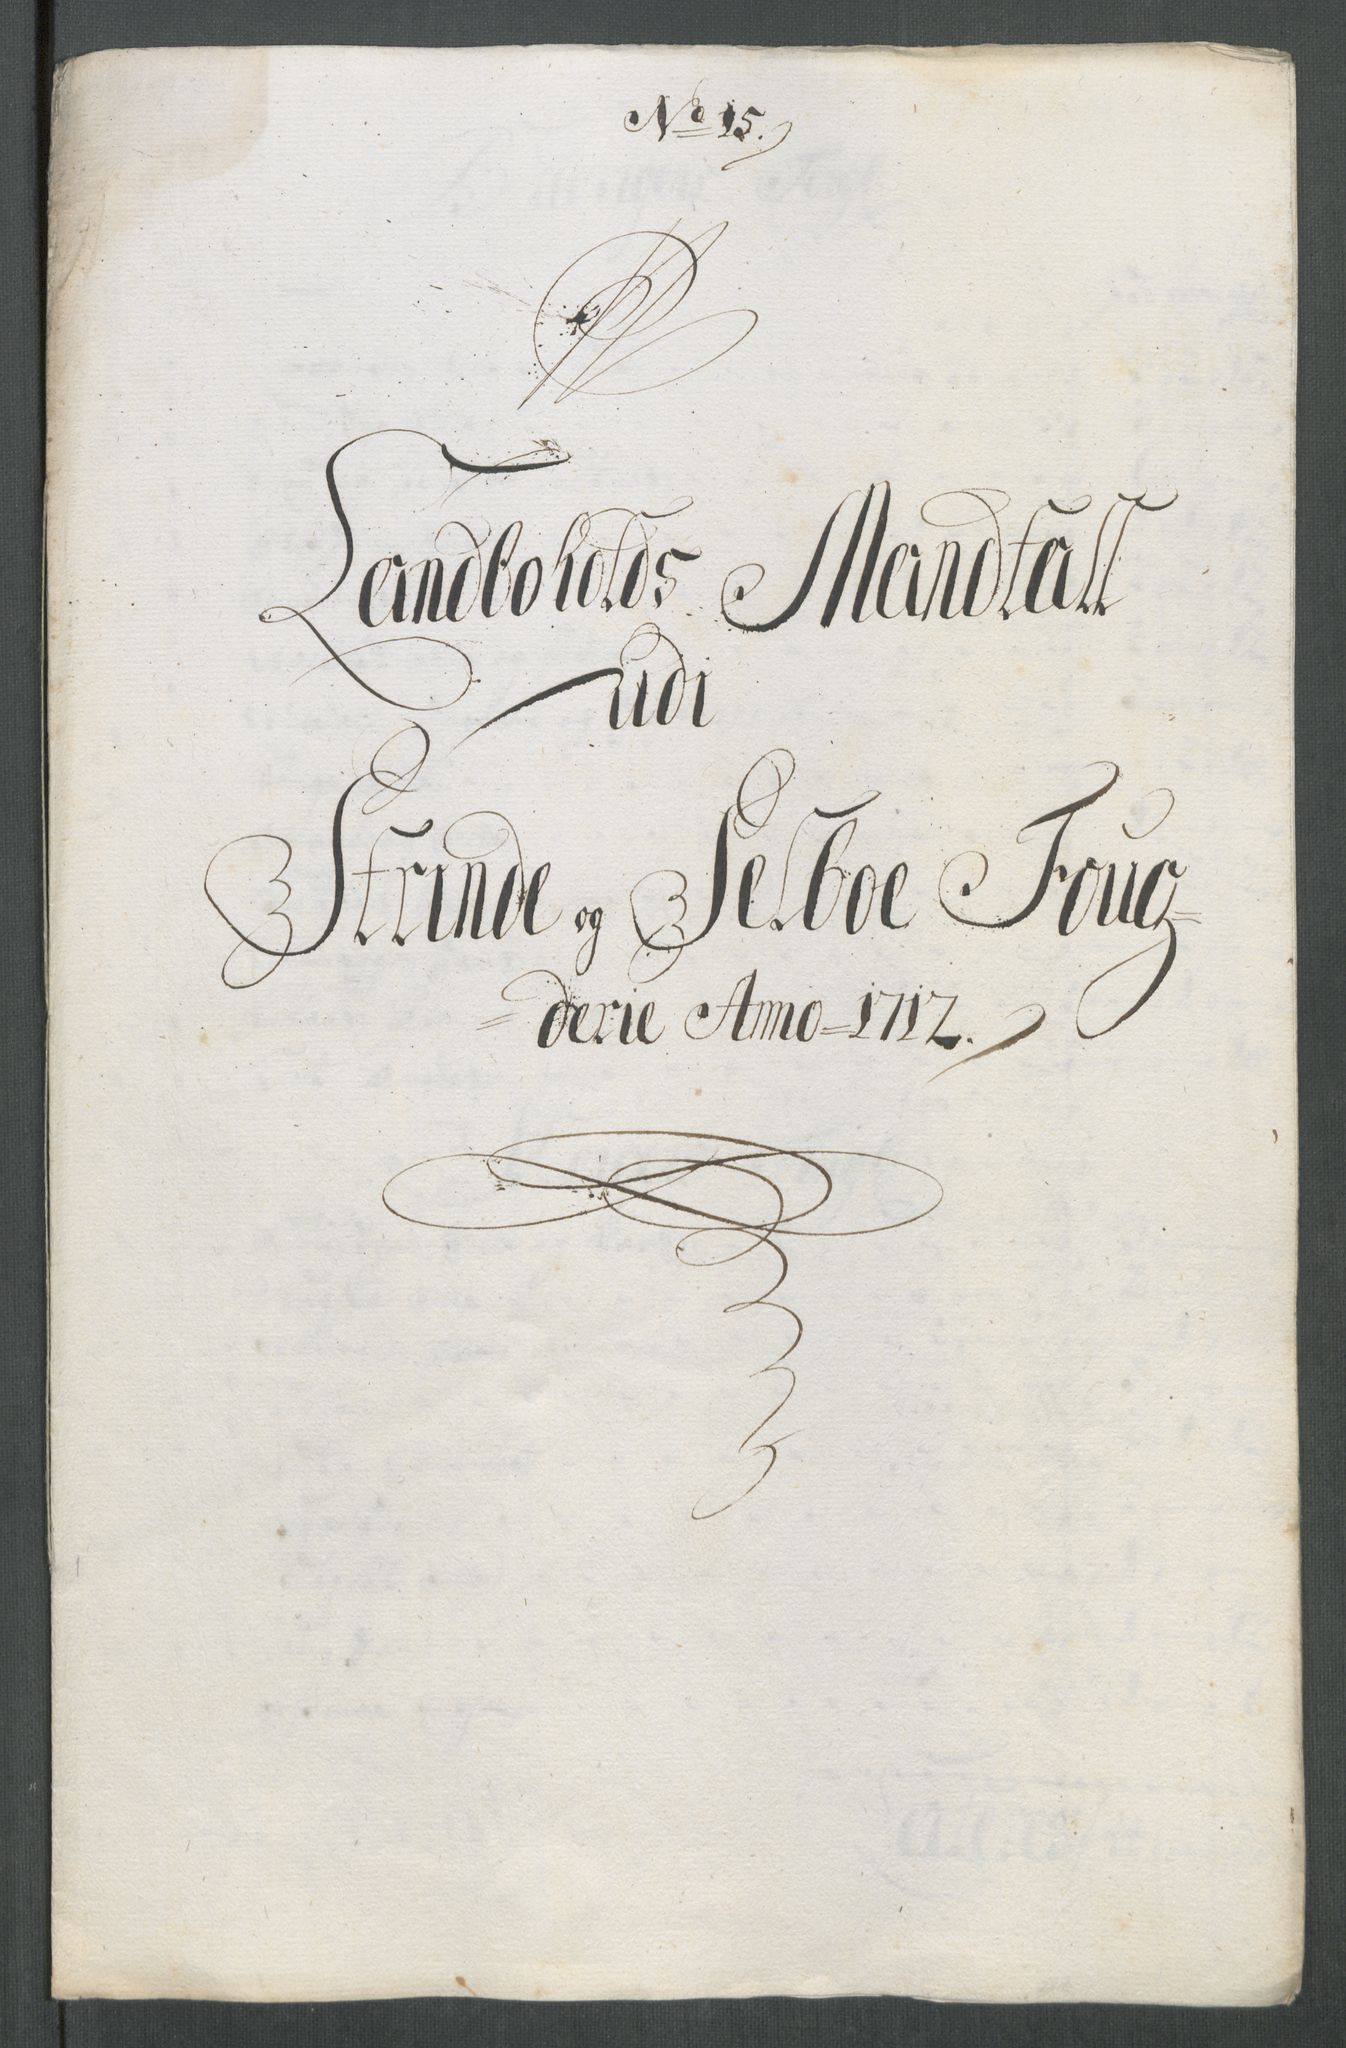 No 15.
Landboholds Mandtall
udi
Strinde og Selboe Foug=
=derie Anno 1712.